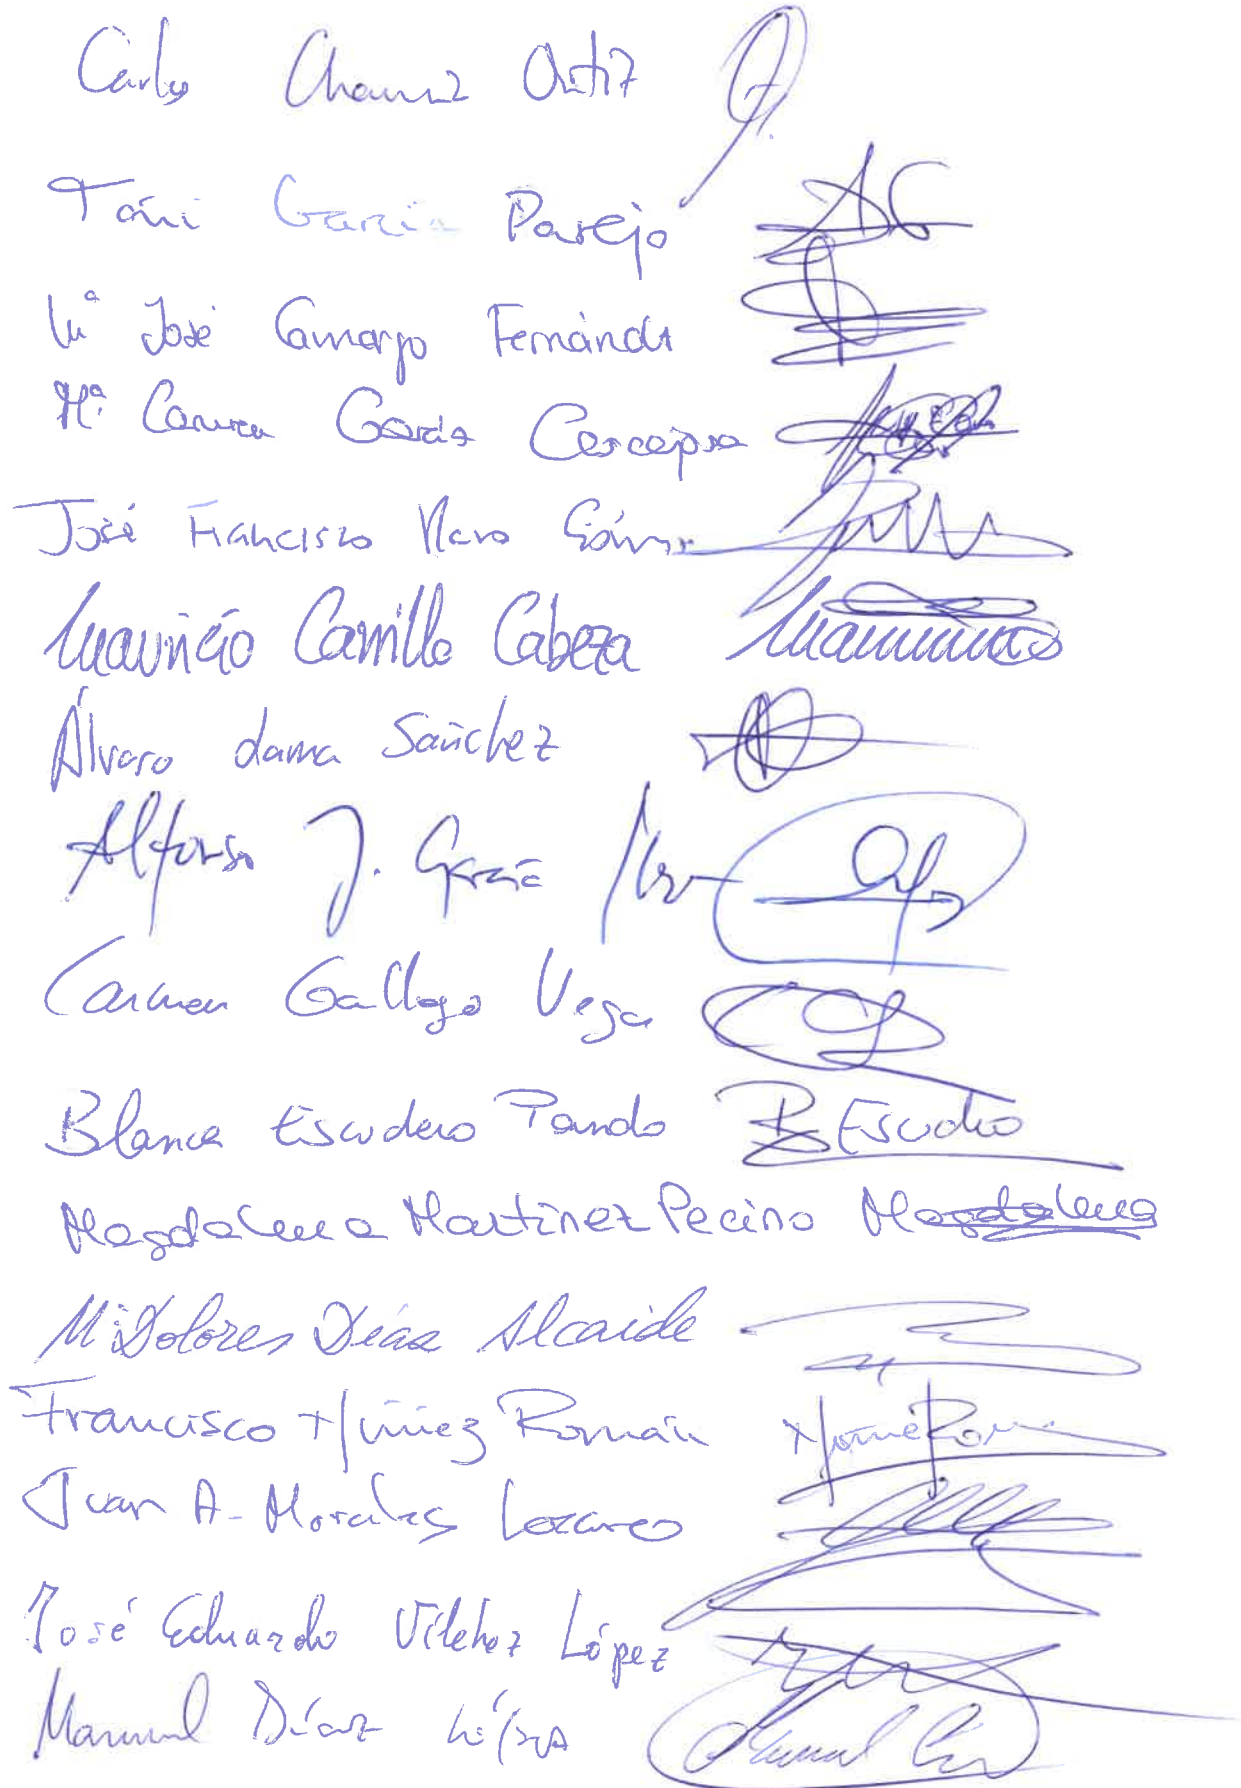 Carlos Ortiz
Toñi García Parejo
Mª José Camargo Fernández
Mª Carmen García
José Francisco Gómez
Mauricio Carrillo Cabeza
Álvaro Lama Sánchez
Alfonso J. García
Carmen Gallego Vega
Blanca Escudero Pando B Escudero
Magdalena Martínez Pecino Magdalena
Mª Dolores Díaz Alcaide
Francisco Núñez Román
Juan A. Morales Lozano
José Eduardo Vílchez López
Manuel Díaz